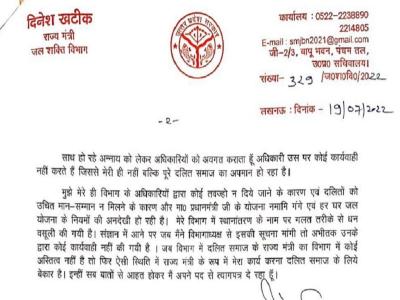 दिनेश खटीक
राज्य मंत्री
जल शक्ति विभाग
कार्यालय : 0522-2238890
2214805
E-mail : smjbn2021@gmail.com
जी-2/3, बापू भवन, पंचम तल,
उ०प्र० सचिवालय।
संख्या- 329 /ज०श०वि०/2022
लखनऊ : दिनांक - 19/07/2022
-2-
साथ हो रहे अन्नाय को लेकर अधिकारियों को अवगत कराता हूँ अधिकारी उस पर कोई कार्यवाही
नहीं करते हैं जिससे मेरी ही नहीं बल्कि पूरे दलित समाज का अपमान हो रहा है।
मुझे मेरे ही विभाग के अधिकारियों द्वारा कोई तवज्हो न दिये जाने के कारण एवं दलितों को
उचित मान-सम्मान न मिलने के कारण और मा० प्रधानमंत्री जी के योजना नमामि गंगे एवं हर घर जल
योजना के नियमों की अनदेखी हो रही है। मेरे विभाग में स्थानांतरण के नाम पर गलत तरीके से धन
वसूली की गयी है। संज्ञान में आने पर जब मैंने विभागाध्यक्ष से इसकी सूचना मांगी तो अभीतक उनके
द्वारा कोई कार्यवाही नहीं की गयी है । जब विभाग में दलित समाज के राज्य मंत्री का विभाग में कोई
अस्तित्व नहीं है तो फिर ऐसी स्थिति में राज्य मंत्री के रूप में मेरा कार्य करना दलित समाज के लिये
बेकार है। इन्हीं सब बातों से आहत होकर मैं अपने पद से त्यागपत्र दे रहा हूँ।